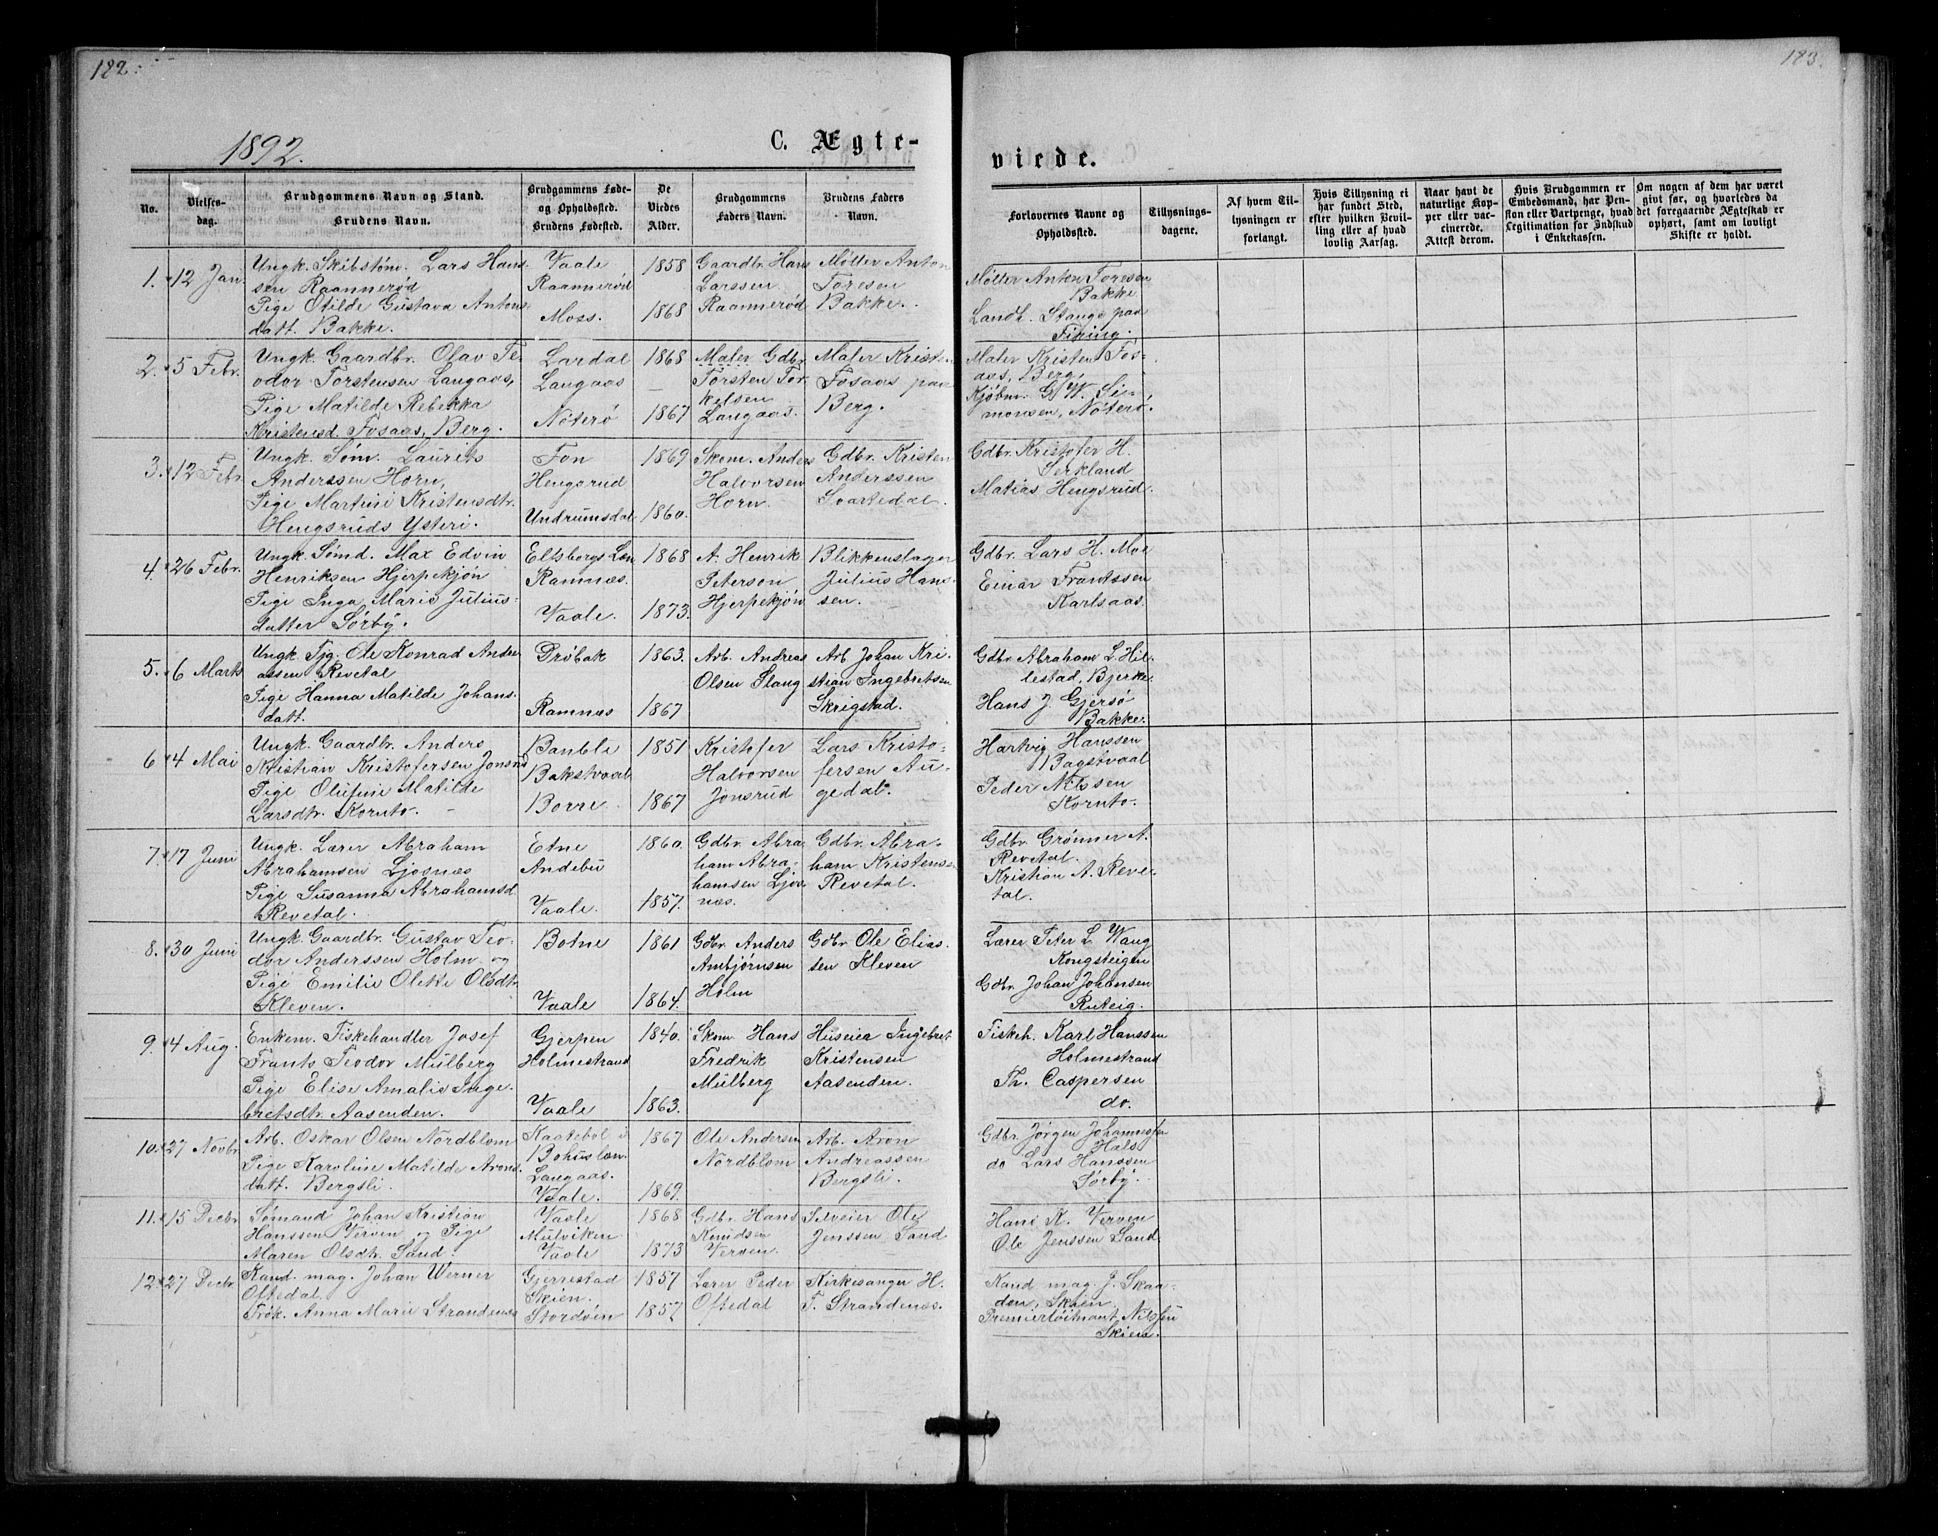 182.
183.
1892.
C. Ægte-
viede.
No.
Vielses-
dag.
Brudgommens Navn og Stand.
Brudens Navn.
Brudgommens Føde-
og Opholdssted.
Brudens Fødested.
De
Viedes
Alder.
Brudgommens
Faders Navn.
Brudens Faders
Navn.
Forlovernes Navne og
Opholdssted.
Tillysnings-
dagene.
Af hvem Til-
lysningen er
forlangt.
Hvis Tillysning ei
har fundet Sted,
efter hvilken Bevil-
ling eller af hvad
lovlig Aarsag.
Naar havt de
naturlige Kop-
per eller vac-
cinerede.
Attest derom.
Hvis Brudgommen er
Embedsmand, har Pen-
sion eller Vartpenge, hvad
Legitimation for Indskud
i Enkekassen.
Om nogen af dem har været
givt før, og hvorledes da
det foregaaende Ægteskab er
ophørt, samt om lovligt
Skifte er holdt.
1. 12 Jan
Ungk. Skibstøm. Lars Hans-
sen Raannerød
Pige Otilde Gustava Antons
datt. Bakke.
Vaale
Raannerød
Moss.
1858
1868
Gaardbr. Hans
Larssen
Raannerød
Møller Anton
Toresen
Bakke.
Møller Anton Toresen
Bakke
Landh. Stange paa
2. 5 Febr.
Ungk. Gaardbr. Olav Te-
odor Torstensen Langaas,
Pige Matilde Rebekka
Kristensd. Fosaas, Berg.
Lardal
Langaas
Nøterø
1868
1867
Maler Gdbr.
Torsten Tor-
kelsen
Langaas.
Maler Kristen
Fosaas paa
Berg.
Maler Kristen Fos-
aas, Berg,
Kjøbm. G. W. Si-
monsen, Nøterø.
3. 12 Febr.
Ungk. Søm. Laurits
Anderssen Horn,
Pige Martine Kristensdtr.
Hengsruds Ysteri.
Fon
Hengsrud
Undrumsdal
1869
1860.
Skom. Anders
Halvorsen
Horn.
Gdbr. Kristen
Anderssen
Svartedal.
Gdbr. Kristofer H.
Serkland
Matias Hengsrud.
4. 26 Febr.
Ungk. Sømd. Max Edvin
Henriksen Hjerpekjøn
Pige Inga Marie Julius-
datter Sørby.
Elfsborgs Len
Ramnæs.
Vaale.
1868
1873.
A. Henrik
Peterson
Hjerpekjøn
Blikkenslager
Julius Hans-
sen.
Gdbr. Lars H. Moe
Einar Frantssen
Karlsaas.
5. 6 Marts
Ungk. Tjg. Ole Konrad Andre-
assen Revetal
Pige Hanna Matilde Johans-
datt.
Drøbak
Ramnæs
1863.
1867
Arb. Andreas
Olsen Slang
Arb. Johan Kri-
stian Ingebretsen
Skrigstad.
Gdbr. Abraham L. Hil-
lestad, Bjerke
Hans J. Gjersø
Bakke.
6 4 Mai
Ungk. Gaardbr. Anders
Kristian Kristofersen Jonsrud
Pige Olufine Matilde
Larsdtr. Kornto.
Bamble
Bakstvaal
Borre.
1851
1867
Kristofer
Halvorsen
Jonsrud
Lars Kristo-
fersen Au-
gedal.
Hartvig Hanssen
Bagstvaal
Peder Nilssen
Kornto.
7. 17 Juni
Ungk. Lærer Abraham
Abrahamsen Ljosnæs
Pige Susanna Abrahamsd.
Revetal.
Etne
Andebu
Vaale.
1860.
1857.
Gdbr. Abra-
ham Abra-
hamsen Ljos-
næs.
Gdbr. Abra-
ham Kristens-
Revetal.
Gdbr. Grønner A.
Revetal.
Kristian A. Reve-
tal.
8. 30 Juni
Ungk. Gaardbr. Gustav Teo-
dor Anderssen Holm og
Pige Emilie Olette Olsdtr.
Kleven.
Botne
Vaale
1861
1864.
Gdbr. Anders
Ambjørnsen
Holm
Gdbr. Ole Elias-
sen Kleven
Lærer Peter L. Waug
Kongsteigen
Gdbr. Johan Johansen
Ruteig.
9. 4 Aug.
Enkem. Fiskehandler Josef
Frants Teodor Mülberg
Pige Elise Amalie Inge-
bretsdtr. Aasenden.
Gjerpen
Holmestrand
Vaale
1840.
1863.
Skom. Hans
Fredrik
Mülberg
Huseier Ingebret
Kristensen
Aasenden.
Fiskeh. Karl Hanssen
Holmestrand
Th. Caspersen
do.
10. 27 Novbr.
Arb. Oskar Olsen Nordblom
Pige Karoline Matilde Arons-
datt. Bergsli.
Bohuslæn.
Langaas.
Vaale.
1867
1869.
Ole Andersen
Nordblom
Arb. Aron
Andreassen
Bergsli.
Gdbr. Jørgen Johannessen
Hals
do Lars Hanssen
Sørby.
11. 15 Decbr.
Sømand Johan Kristian
Hanssen Verven og Pige
Maren Olsdtr. Sand.
Vaale
Mulviken
Vaale
1868
1873
Gdbr. Hans
Knudsen
Verven.
Selveier Ole
Jenssen Sand
Hans K. Verven
Ole Jenssen Sand.
12. 27 Decbr.
Kand. mag. Johan Werner
Oftedal
Frøk. Anna Marie Strandenæs
Gjerrestad
Skien.
Stordøen
1857
1857
Lærer Peder
Oftedal
Kirkesanger H.
T. Strandenæs.
Kand mag. J. Skaa-
den, Skien.
Premierløitnant Nilssen
Skien.